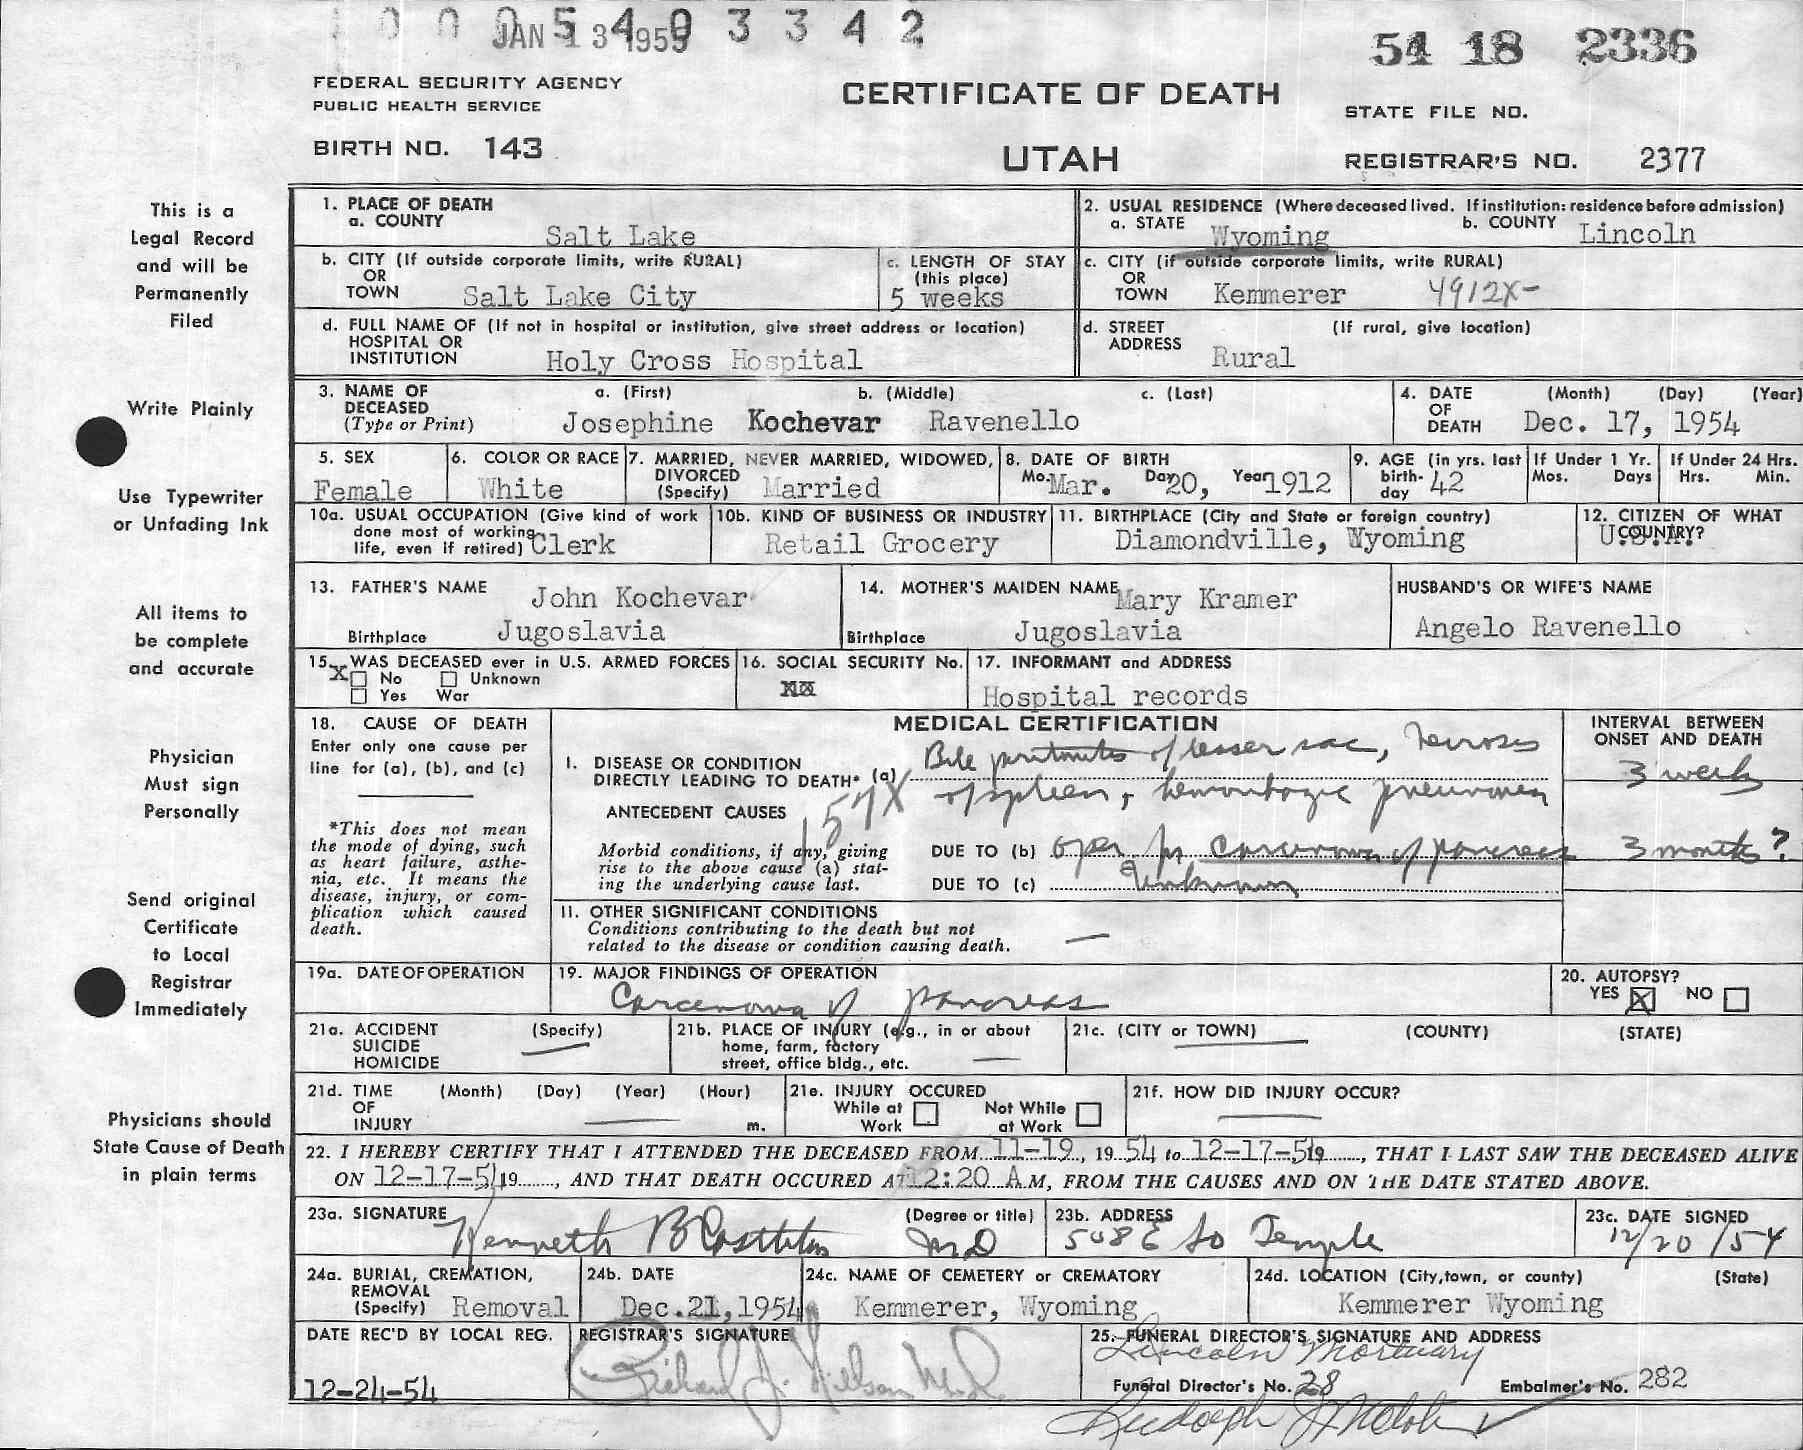 1 0 0 0 5 4 0 3 3 4 2
JAN 13 1955
54 18 2336
FEDERAL SECURITY AGENCY
PUBLIC HEALTH SERVICE
CERTIFICATE OF DEATH
STATE FILE NO.
BIRTH NO. 143
UTAH
REGISTRAR'S NO. 2377
This is a
Legal Record
and will be
Permanently
Filed
Write Plainly
Use Typewriter
or Unfading Ink
All items to
be complete
and accurate
Physician
Must sign
Personally
Send original
Certificate
to Local
Registrar
Immediately
Physicians should
State Cause of Death
in plain terms
1. PLACE OF DEATH
a. COUNTY Salt Lake
2. USUAL RESIDENCE (Where deceased lived. If institution: residence before admission)
a. STATE Wyoming b. COUNTY Lincoln
b. CITY (If outside corporate limits, write RURAL)
OR
TOWN Salt Lake City
c. LENGTH OF STAY
(this place)
5 weeks
c. CITY (if outside corporate limits, write RURAL)
OR
TOWN Kemmerer 4912X-
d. FULL NAME OF (If not in hospital or institution, give street address or location)
HOSPITAL OR
INSTITUTION Holy Cross Hospital
d. STREET (If rural, give location)
ADDRESS Rural
3. NAME OF a. (First) b. (Middle) c. (Last)
DECEASED
(Type or Print) Josephine Kochevar Ravenello
4. DATE (Month) (Day) (Year)
OF
DEATH Dec. 17, 1954
5. SEX
Female
6. COLOR OR RACE
White
7. MARRIED, NEVER MARRIED, WIDOWED,
DIVORCED
(Specify) Married
8. DATE OF BIRTH
Mo. Mar. Day 20, Year 1912
9. AGE (in yrs. last
birth-
day 42
If Under 1 Yr.
Mos. Days
If Under 24 Hrs.
Hrs. Min.
10a. USUAL OCCUPATION (Give kind of work
done most of working
life, even if retired) Clerk
10b. KIND OF BUSINESS OR INDUSTRY
Retail Grocery
11. BIRTHPLACE (City and State or foreign country)
Diamondville, Wyoming
12. CITIZEN OF WHAT
COUNTRY?
U.S.A.
13. FATHER'S NAME John Kochevar
Birthplace Jugoslavia
14. MOTHER'S MAIDEN NAME Mary Kramer
Birthplace Jugoslavia
HUSBAND'S OR WIFE'S NAME
Angelo Ravenello
15. WAS DECEASED ever in U.S. ARMED FORCES
X No Unknown
Yes War
16. SOCIAL SECURITY No.
17. INFORMANT and ADDRESS
Hospital records
18. CAUSE OF DEATH
Enter only one cause per
line for (a), (b), and (c)
*This does not mean
the mode of dying, such
as heart failure, asthe-
nia, etc. It means the
disease, injury, or com-
plication which caused
death.
MEDICAL CERTIFICATION
INTERVAL BETWEEN
ONSET AND DEATH
I. DISEASE OR CONDITION
DIRECTLY LEADING TO DEATH* (a) Bile peritonitis of lesser sac, necrosis
of spleen, + hemorrhagic pneumonia
3 weeks
157X
ANTECEDENT CAUSES
Morbid conditions, if any, giving
rise to the above cause (a) stat-
ing the underlying cause last.
DUE TO (b) oper for carcinoma of pancreas 3 months?
DUE TO (c) Unknown
II. OTHER SIGNIFICANT CONDITIONS
Conditions contributing to the death but not
related to the disease or condition causing death. —
19a. DATE OF OPERATION
19. MAJOR FINDINGS OF OPERATION
Carcenoma of pancreas
20. AUTOPSY?
YES X NO
21a. ACCIDENT (Specify)
SUICIDE —
HOMICIDE
21b. PLACE OF INJURY (e.g., in or about
home, farm, factory
street, office bldg., etc. —
21c. (CITY or TOWN) (COUNTY) (STATE)
21d. TIME (Month) (Day) (Year) (Hour)
OF
INJURY — m.
21e. INJURY OCCURED
While at Not While
Work at Work
21f. HOW DID INJURY OCCUR?
22. I HEREBY CERTIFY THAT I ATTENDED THE DECEASED FROM 11-19, 19 54 to 12-17-54 19 , THAT I LAST SAW THE DECEASED ALIVE
ON 12-17-54 19 , AND THAT DEATH OCCURED AT 12:20 A M, FROM THE CAUSES AND ON THE DATE STATED ABOVE.
23a. SIGNATURE (Degree or title)
Kenneth B Castleton MD
23b. ADDRESS
508 E So Temple
23c. DATE SIGNED
12/20/54
24a. BURIAL, CREMATION,
REMOVAL
(Specify) Removal
24b. DATE
Dec. 21, 1954
24c. NAME OF CEMETERY or CREMATORY
Kemmerer, Wyoming
24d. LOCATION (City, town, or county) (State)
Kemmerer Wyoming
DATE REC'D BY LOCAL REG.
12-24-54
REGISTRAR'S SIGNATURE
Richard J. Nilsson M.D.
25. FUNERAL DIRECTOR'S SIGNATURE AND ADDRESS
Lincoln Mortuary
Funeral Director's No. 28 Embalmer's No. 282
Rudolph J